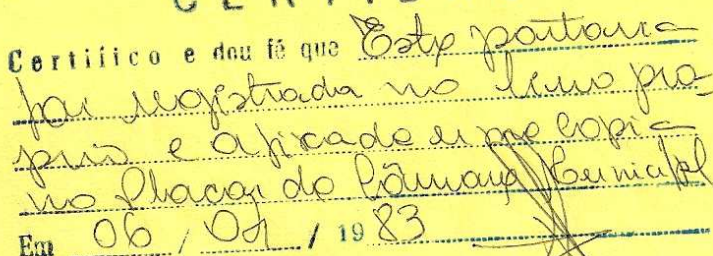 Certifico e dou fé que Esta portaria
foi registrada no livro pro-
prio e afixado uma copia
no Placar da Câmara Municipal
Em 06 / 01 / 19 83